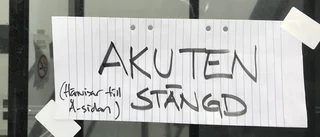 AKUTEN
(Hänvisar till
A-sidan)
STÄNGD